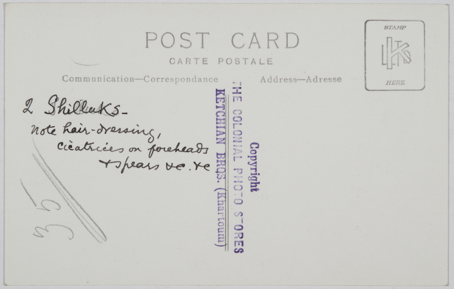 POST CARD
CARTE POSTALE
Communication—Correspondance
Address—Adresse
STAMP
HERE
2 Shilluks–
note hair-dressing,
cicatrices on foreheads
+ spears &c. &c
Copyright
THE COLONIAL PHOTO STORES
KETCHIAN BROS. (Khartoum)
35